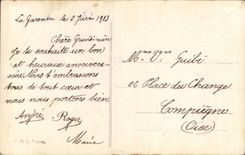 La Garenne le 2 Juin 1913
Chère Grand'mère
je te souhaite un bon
et heureux anniver-
saire. Nous t'embrassons
tous de tout cœur et
nous nous portons bien
André Roger
Marie
Mme Vve Guibé
22 Place du Change
Compiègne
(Oise)